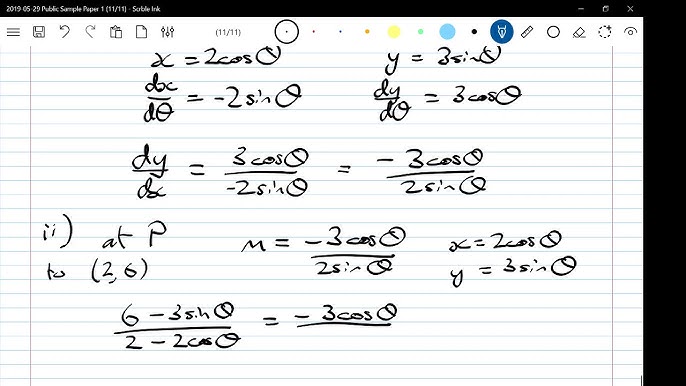 2019-05-29 Public Sample Paper 1 (11/11) - Scrble Ink
(11/11)
x = 2cosθ y = 3sinθ
dx/dθ = -2sinθ dy/dθ = 3cosθ
dy/dx = 3cosθ/-2sinθ = -3cosθ/2sinθ
ii) at P m = -3cosθ/2sinθ x = 2cosθ
to (2,6) y = 3sinθ
6-3sinθ/2-2cosθ = -3cosθ